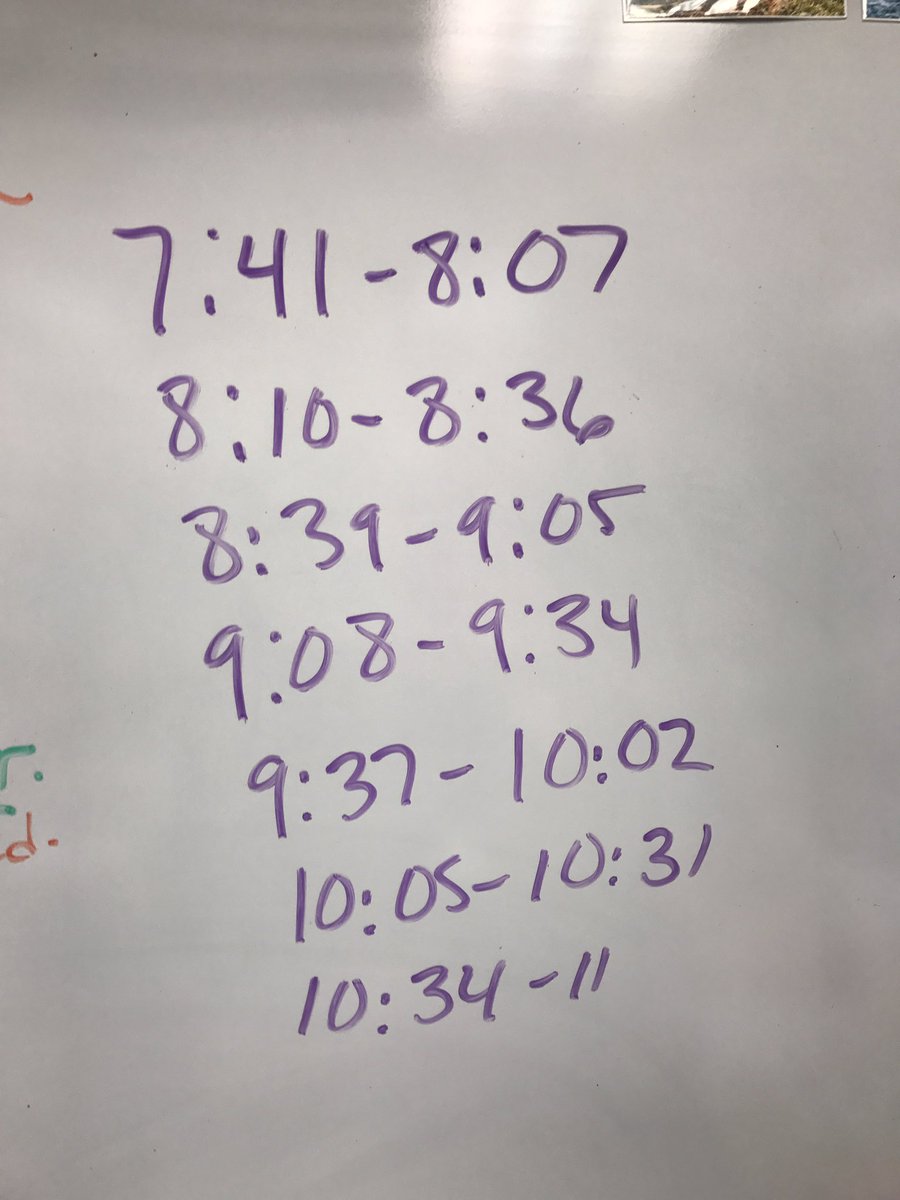 7:41-8:07
8:10-8:36
8:39-9:05
9:08-9:34
9:37-10:02
10:05-10:31
10:34-11
r.
d.